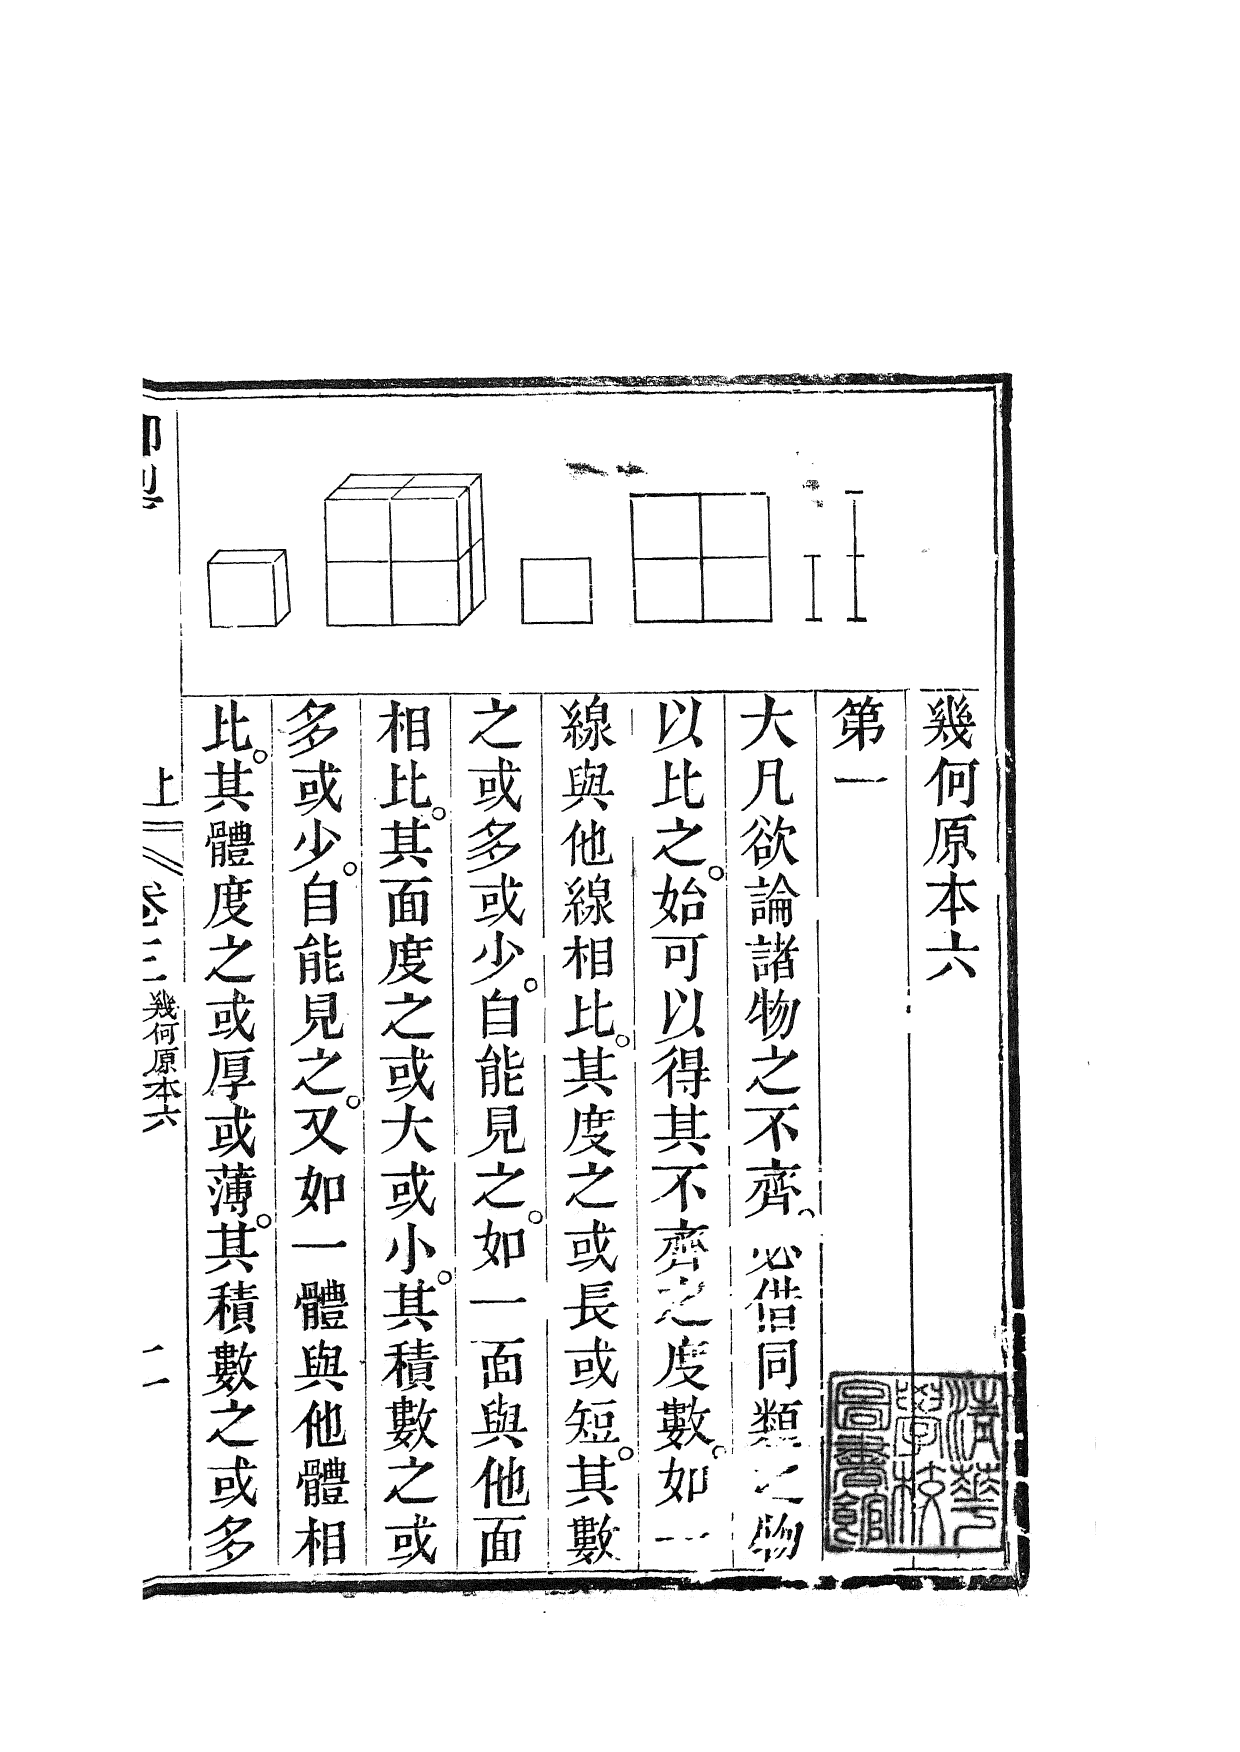 幾何原本六
第一
大凡欲論諸物之不齊。必借同類之物
以比之。始可以得其不齊之度數。如一
線與他線相比。其度之或長或短。其數
之或多或少。自能見之。如一面與他面
相比。其面度之或大或小。其積數之或
多或少。自能見之。又如一體與他體相
比。其體度之或厚或薄。其積數之或多
上
卷三
幾何原本六
清華
學校
圖書館